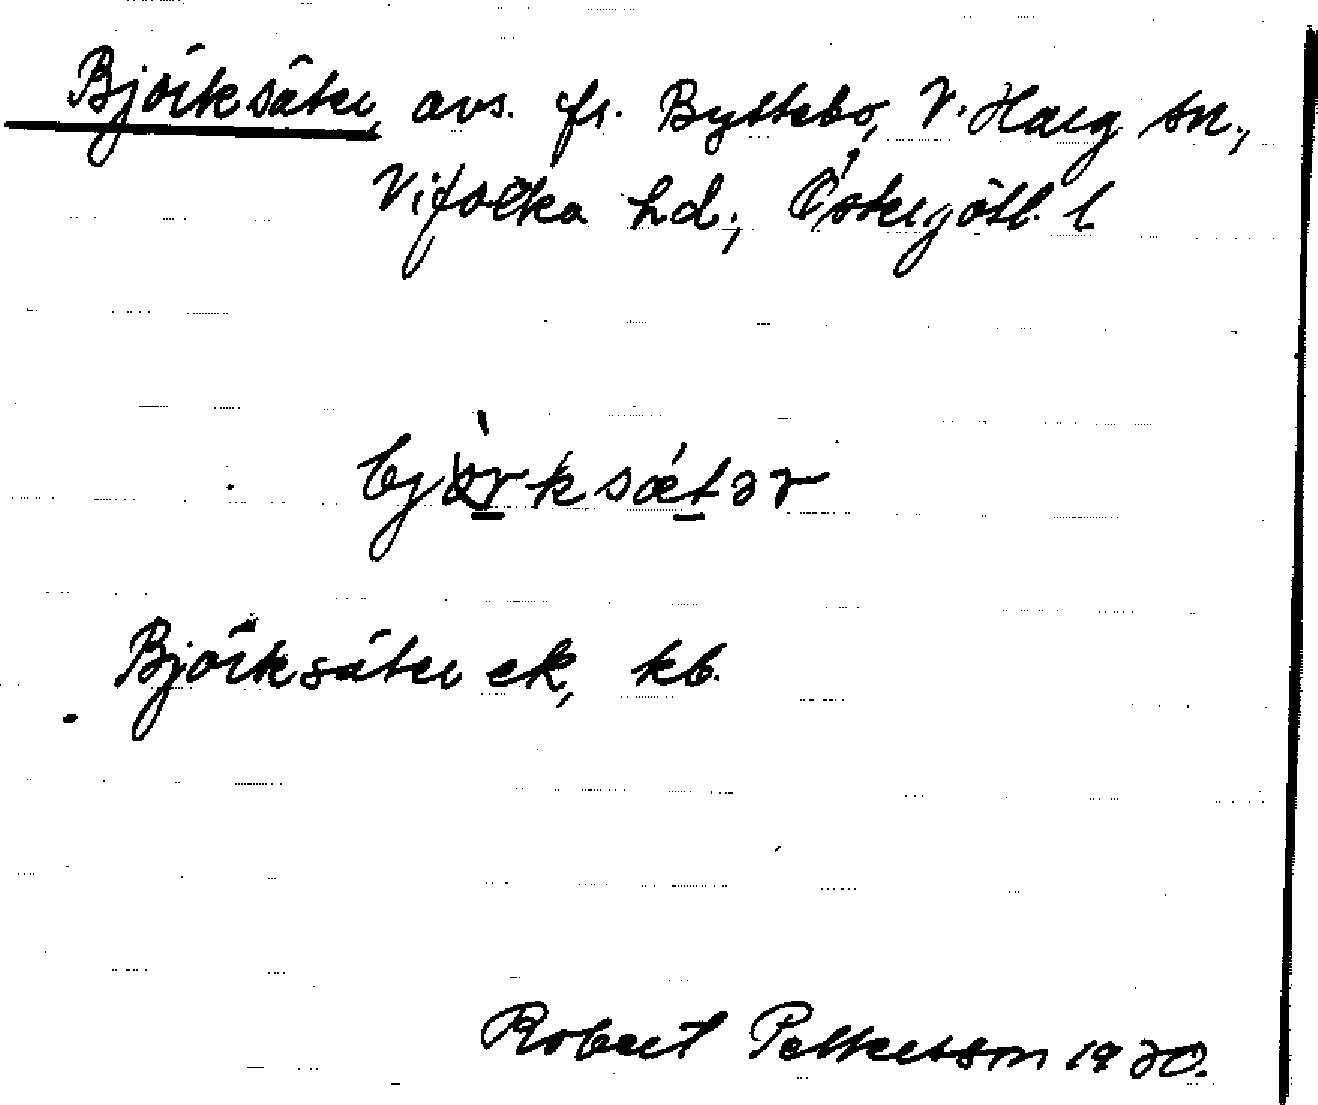 Björksäter, avs. fr. Byttebo, V. Harg sn.,
Vifolka hd., Östergötl. l.
bjö̀rksǽtər
Björksäter ek, kb.
Robert Pettersson 1930.